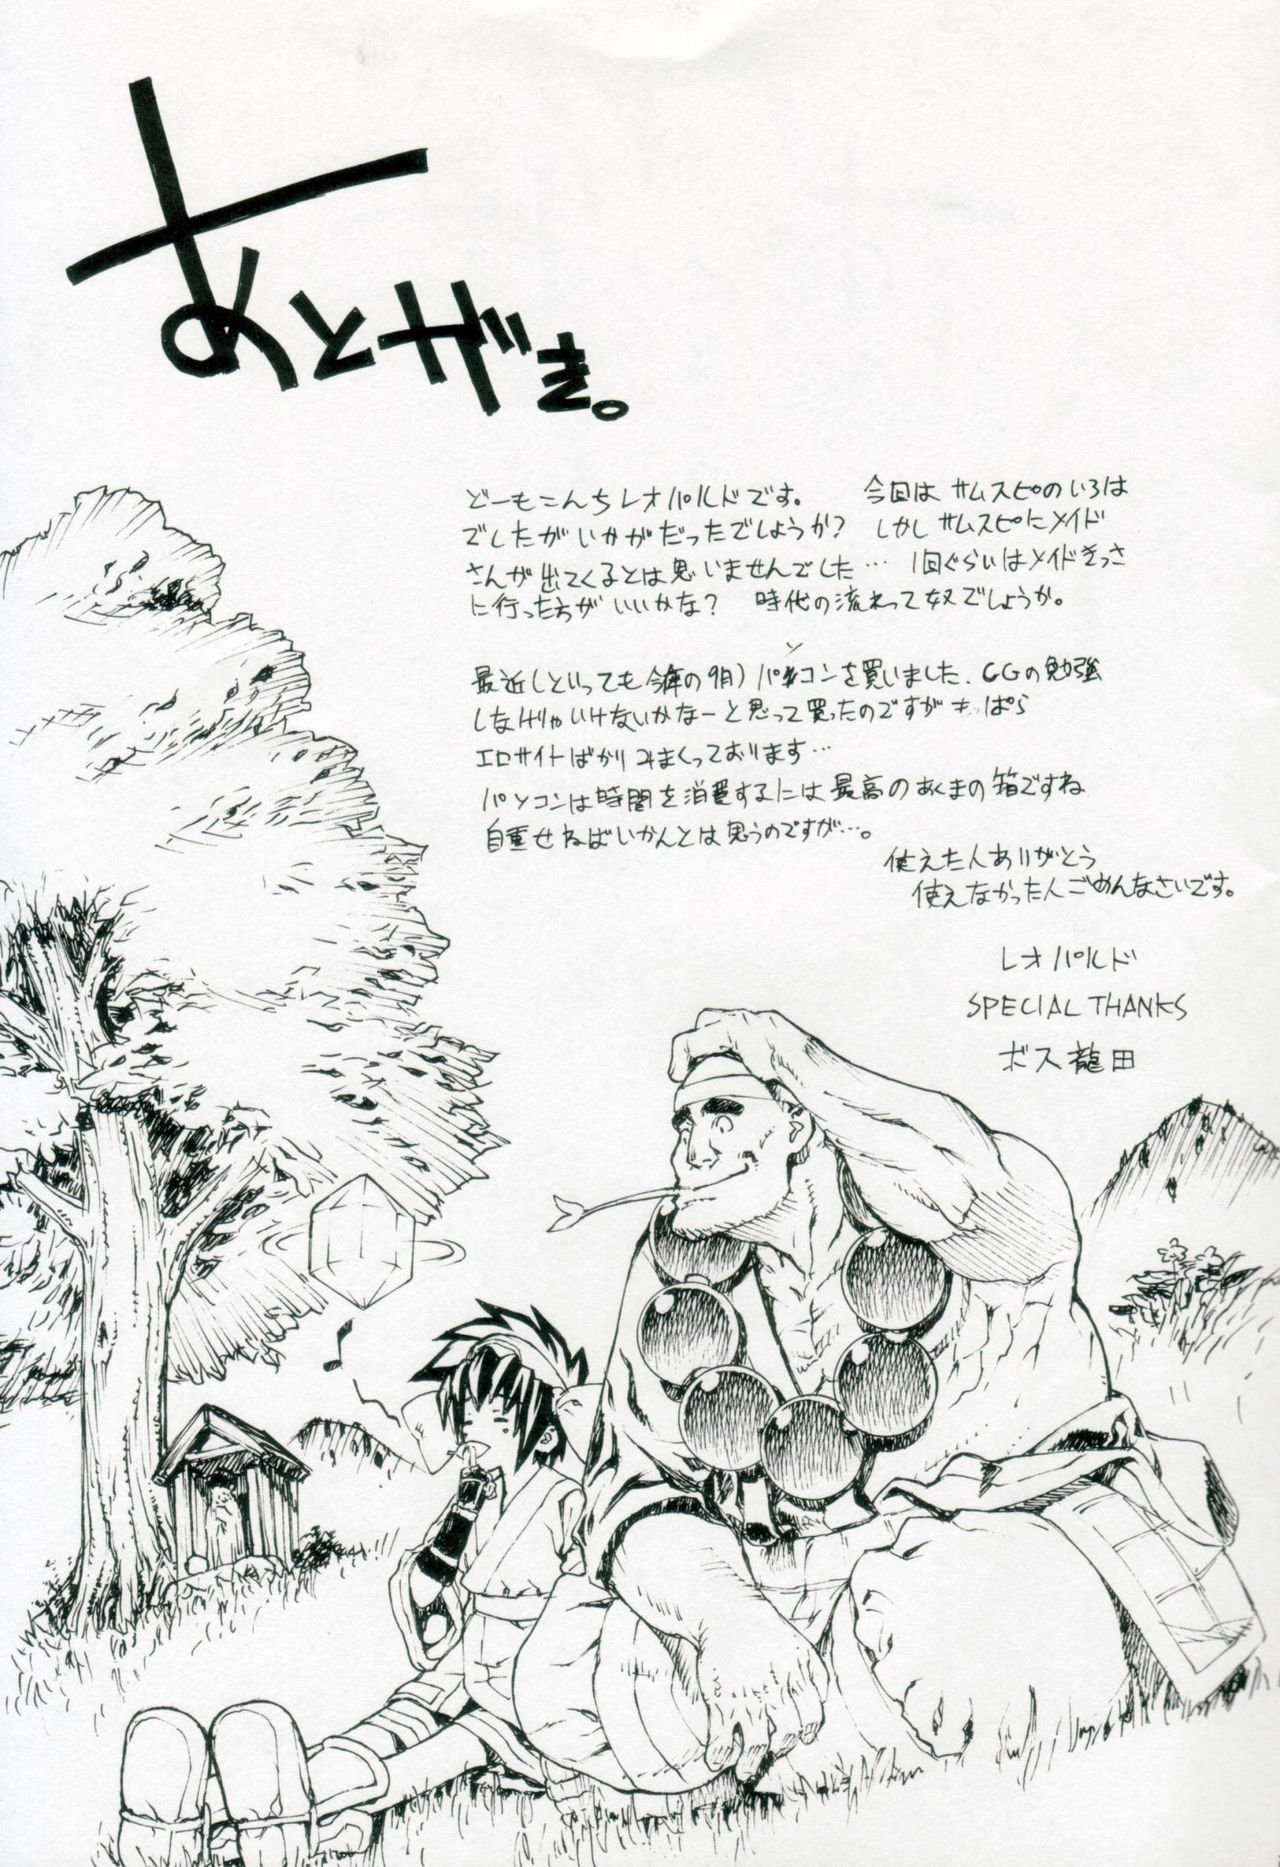 あとがき。
どーもこんちレオパルドです。 今回は サムスピのいろは
でしたがいかがだったでしょうか? しかしサムスピにメイド
さんが出てくるとは思いませんでした… 1回ぐらいはメイドきっさ
に行った方がいいかな? 時代の流れって奴でしょうか。
最近(といっても今年の9月)パソコンを買いました、CGの勉強
しなけりゃいけないかなーと思って買ったのですが もっぱら
エロサイトばかりみまくっております…
パソコンは時間を消費するには最高のあくまの箱ですね
自重せねばいかんとは思うのですが…。
使えた人ありがとう
使えなかった人ごめんなさいです。
レオパルド
SPECIAL THANKS
ボス龍田